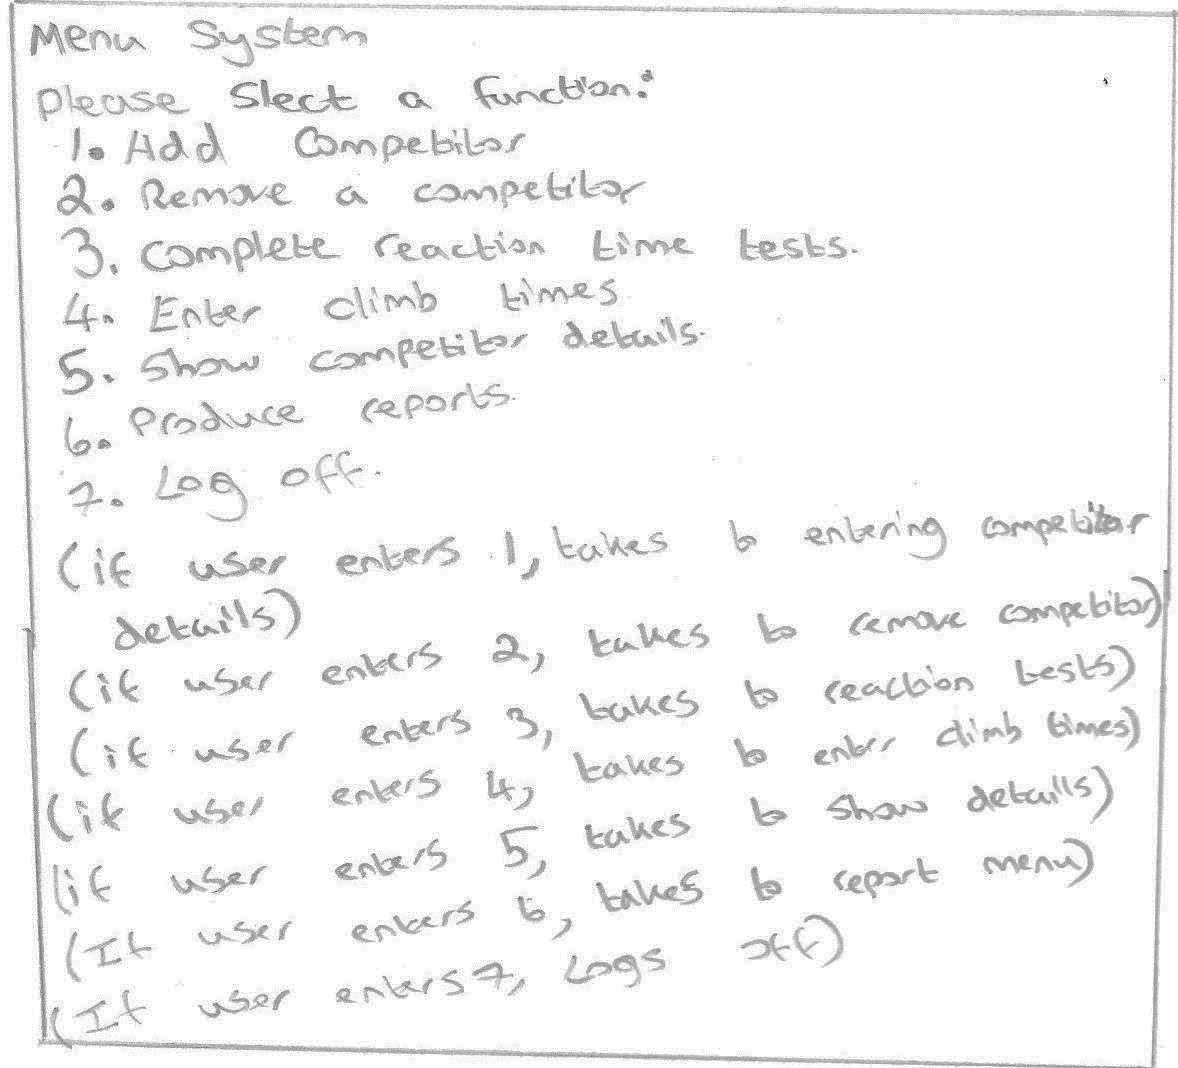 Menu System
please Slect a function:
1. Add Competitor
2. Remove a competitor
3. Complete reaction time tests.
4. Enter climb times
5. Show competitor details.
6. Produce reports.
7. Log off.
(if user enters 1, takes to entering competitor
details)
(if user enters 2, takes to remove competitor)
(if user enters 3, takes to reaction tests)
(if user enters 4, takes to enter climb times)
(if user enters 5, takes to show details)
(If user enters 6, takes to report menu)
(If user enters 7, Logs off)